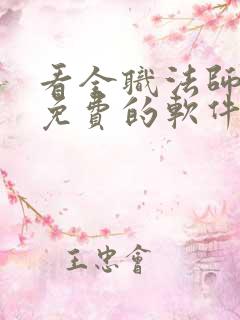 看全職法師
免費的軟件
王忠會